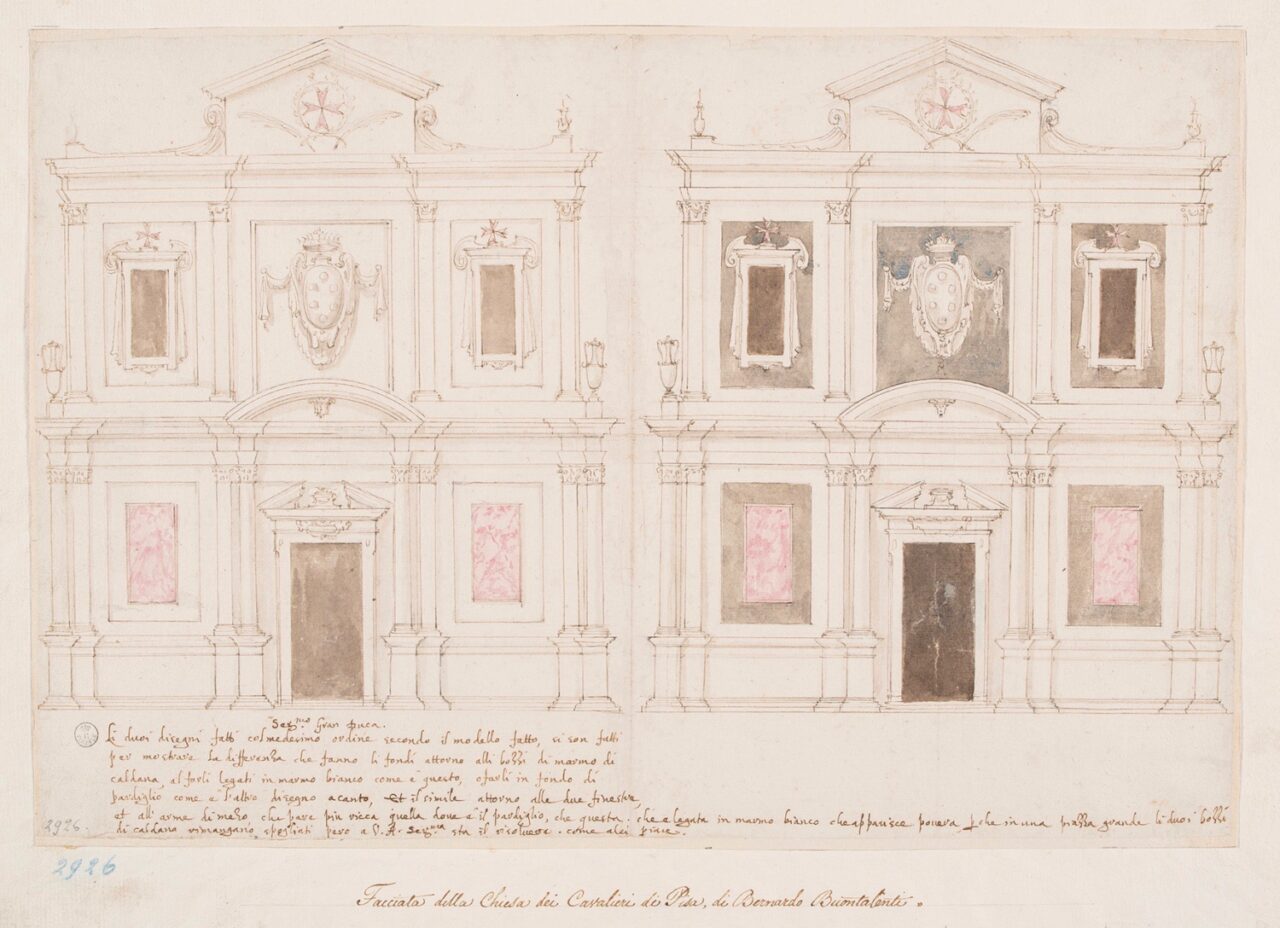 Ser.mo Gran Duca.
Li duoi disegni fatti colmedesimo ordine secondo il modello fatto, si son fatti
per mostrare la differenza che fanno li fondi attorno alli bozzi di marmo di
caldana, al farli legati in marmo bianco come è questo, o farli in fondo di
pardiglio come è l'altro disegno acanto, et il simile attorno alle due finestre,
et all'arme di mezo, che pare piu ricca quella dove è il pardiglio, che questa che è legata in marmo bianco che apparisce povera, perche in una piazza grande li duoi bozzi
di caldana rimangano spogliati pero a V. A. Ser.ma sta il risolvere come a lei piace.
2926.
2926
Facciata della Chiesa dei Cavalieri di Pisa, di Bernardo Buontalenti.